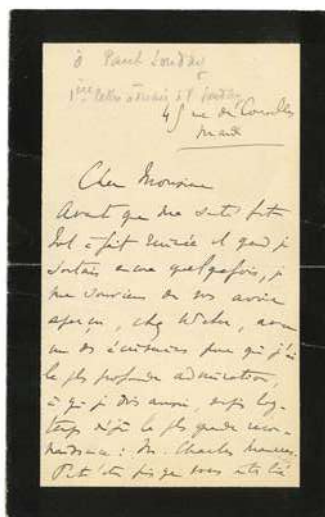 à Paul Souday
1ère lettre à Souday
45 rue de Courcelles
Mardi
Cher Monsieur
Avant que ma santé fût
tout à fait ruinée et quand je
sortais encore quelquefois, je
me souviens de vous avoir
aperçu, chez Weber, avec
un des écrivains pour qui j'ai
la plus profonde admiration,
à qui je dois aussi, depuis long-
temps déjà la plus grande recon-
naissance : M. Charles Maurras.
Peut'être puisque vous êtes lié